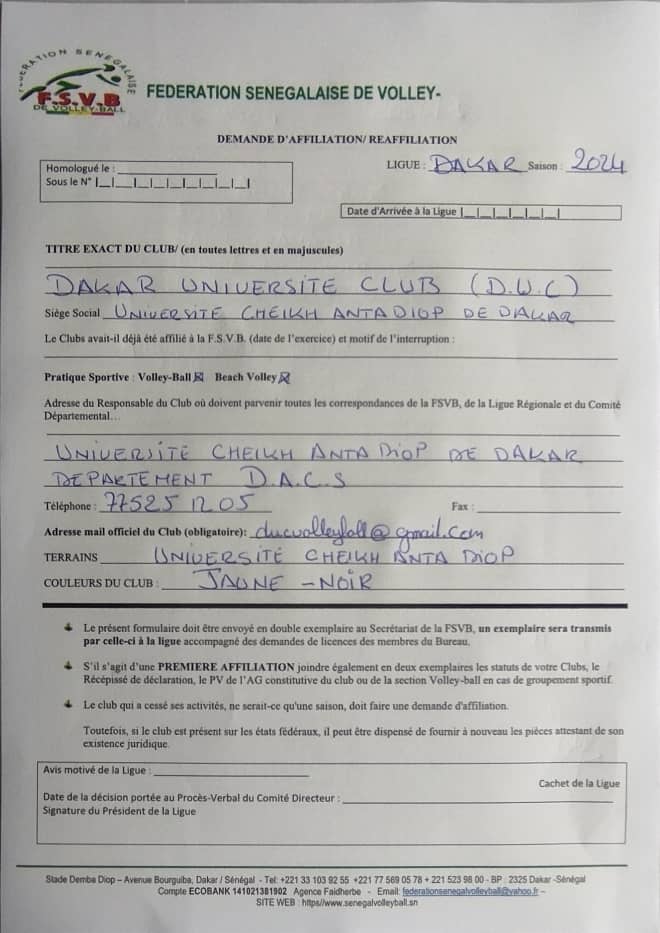 FEDERATION SENEGALAISE
F.S.V.B
DE VOLLEY-BALL
FEDERATION SENEGALAISE DE VOLLEY-
DEMANDE D'AFFILIATION/ REAFFILIATION
Homologué le : ____________
LIGUE : DAKAR Saison : 2024
Sous le N° |__|__|__|__|__|__|__|__|
Date d'Arrivée à la Ligue |__|__|__|__|__|__|
TITRE EXACT DU CLUB/ (en toutes lettres et en majuscules)
DAKAR UNIVERSITE CLUB (D.U.C)
Siège Social UNIVERSITE CHEIKH ANTA DIOP DE DAKAR
Le Clubs avait-il déjà été affilié à la F.S.V.B. (date de l'exercice) et motif de l'interruption :
Pratique Sportive : Volley-Ball ☒ Beach Volley ☒
Adresse du Responsable du Club où doivent parvenir toutes les correspondances de la FSVB, de la Ligue Régionale et du Comité
Départemental…
UNIVERSITE CHEIKH ANTA DIOP DE DAKAR
DEPARTEMENT D.A.C.S
Téléphone : 77525 12 05 Fax :
Adresse mail officiel du Club (obligatoire): ducvolleyball@gmail.com
TERRAINS UNIVERSITÉ CHEIKH ANTA DIOP
COULEURS DU CLUB : JAUNE - NOIR
Le présent formulaire doit être envoyé en double exemplaire au Secrétariat de la FSVB, un exemplaire sera transmis
par celle-ci à la ligue accompagné des demandes de licences des membres du Bureau.
S'il s'agit d'une PREMIERE AFFILIATION joindre également en deux exemplaires les statuts de votre Clubs, le
Récépissé de déclaration, le PV de l'AG constitutive du club ou de la section Volley-ball en cas de groupement sportif.
Le club qui a cessé ses activités, ne serait-ce qu'une saison, doit faire une demande d'affiliation.
Toutefois, si le club est présent sur les états fédéraux, il peut être dispensé de fournir à nouveau les pièces attestant de son
existence juridique.
Avis motivé de la Ligue :
Cachet de la Ligue
Date de la décision portée au Procès-Verbal du Comité Directeur :
Signature du Président de la Ligue
Stade Demba Diop – Avenue Bourguiba, Dakar / Sénégal - Tel: +221 33 103 92 55 +221 77 569 05 78 + 221 523 98 00 - BP : 2325 Dakar -Sénégal
Compte ECOBANK 141021381902 Agence Faidherbe - Email: federationsenegalvolleyball@yahoo.fr –
SITE WEB : https//www.senegalvolleyball.sn